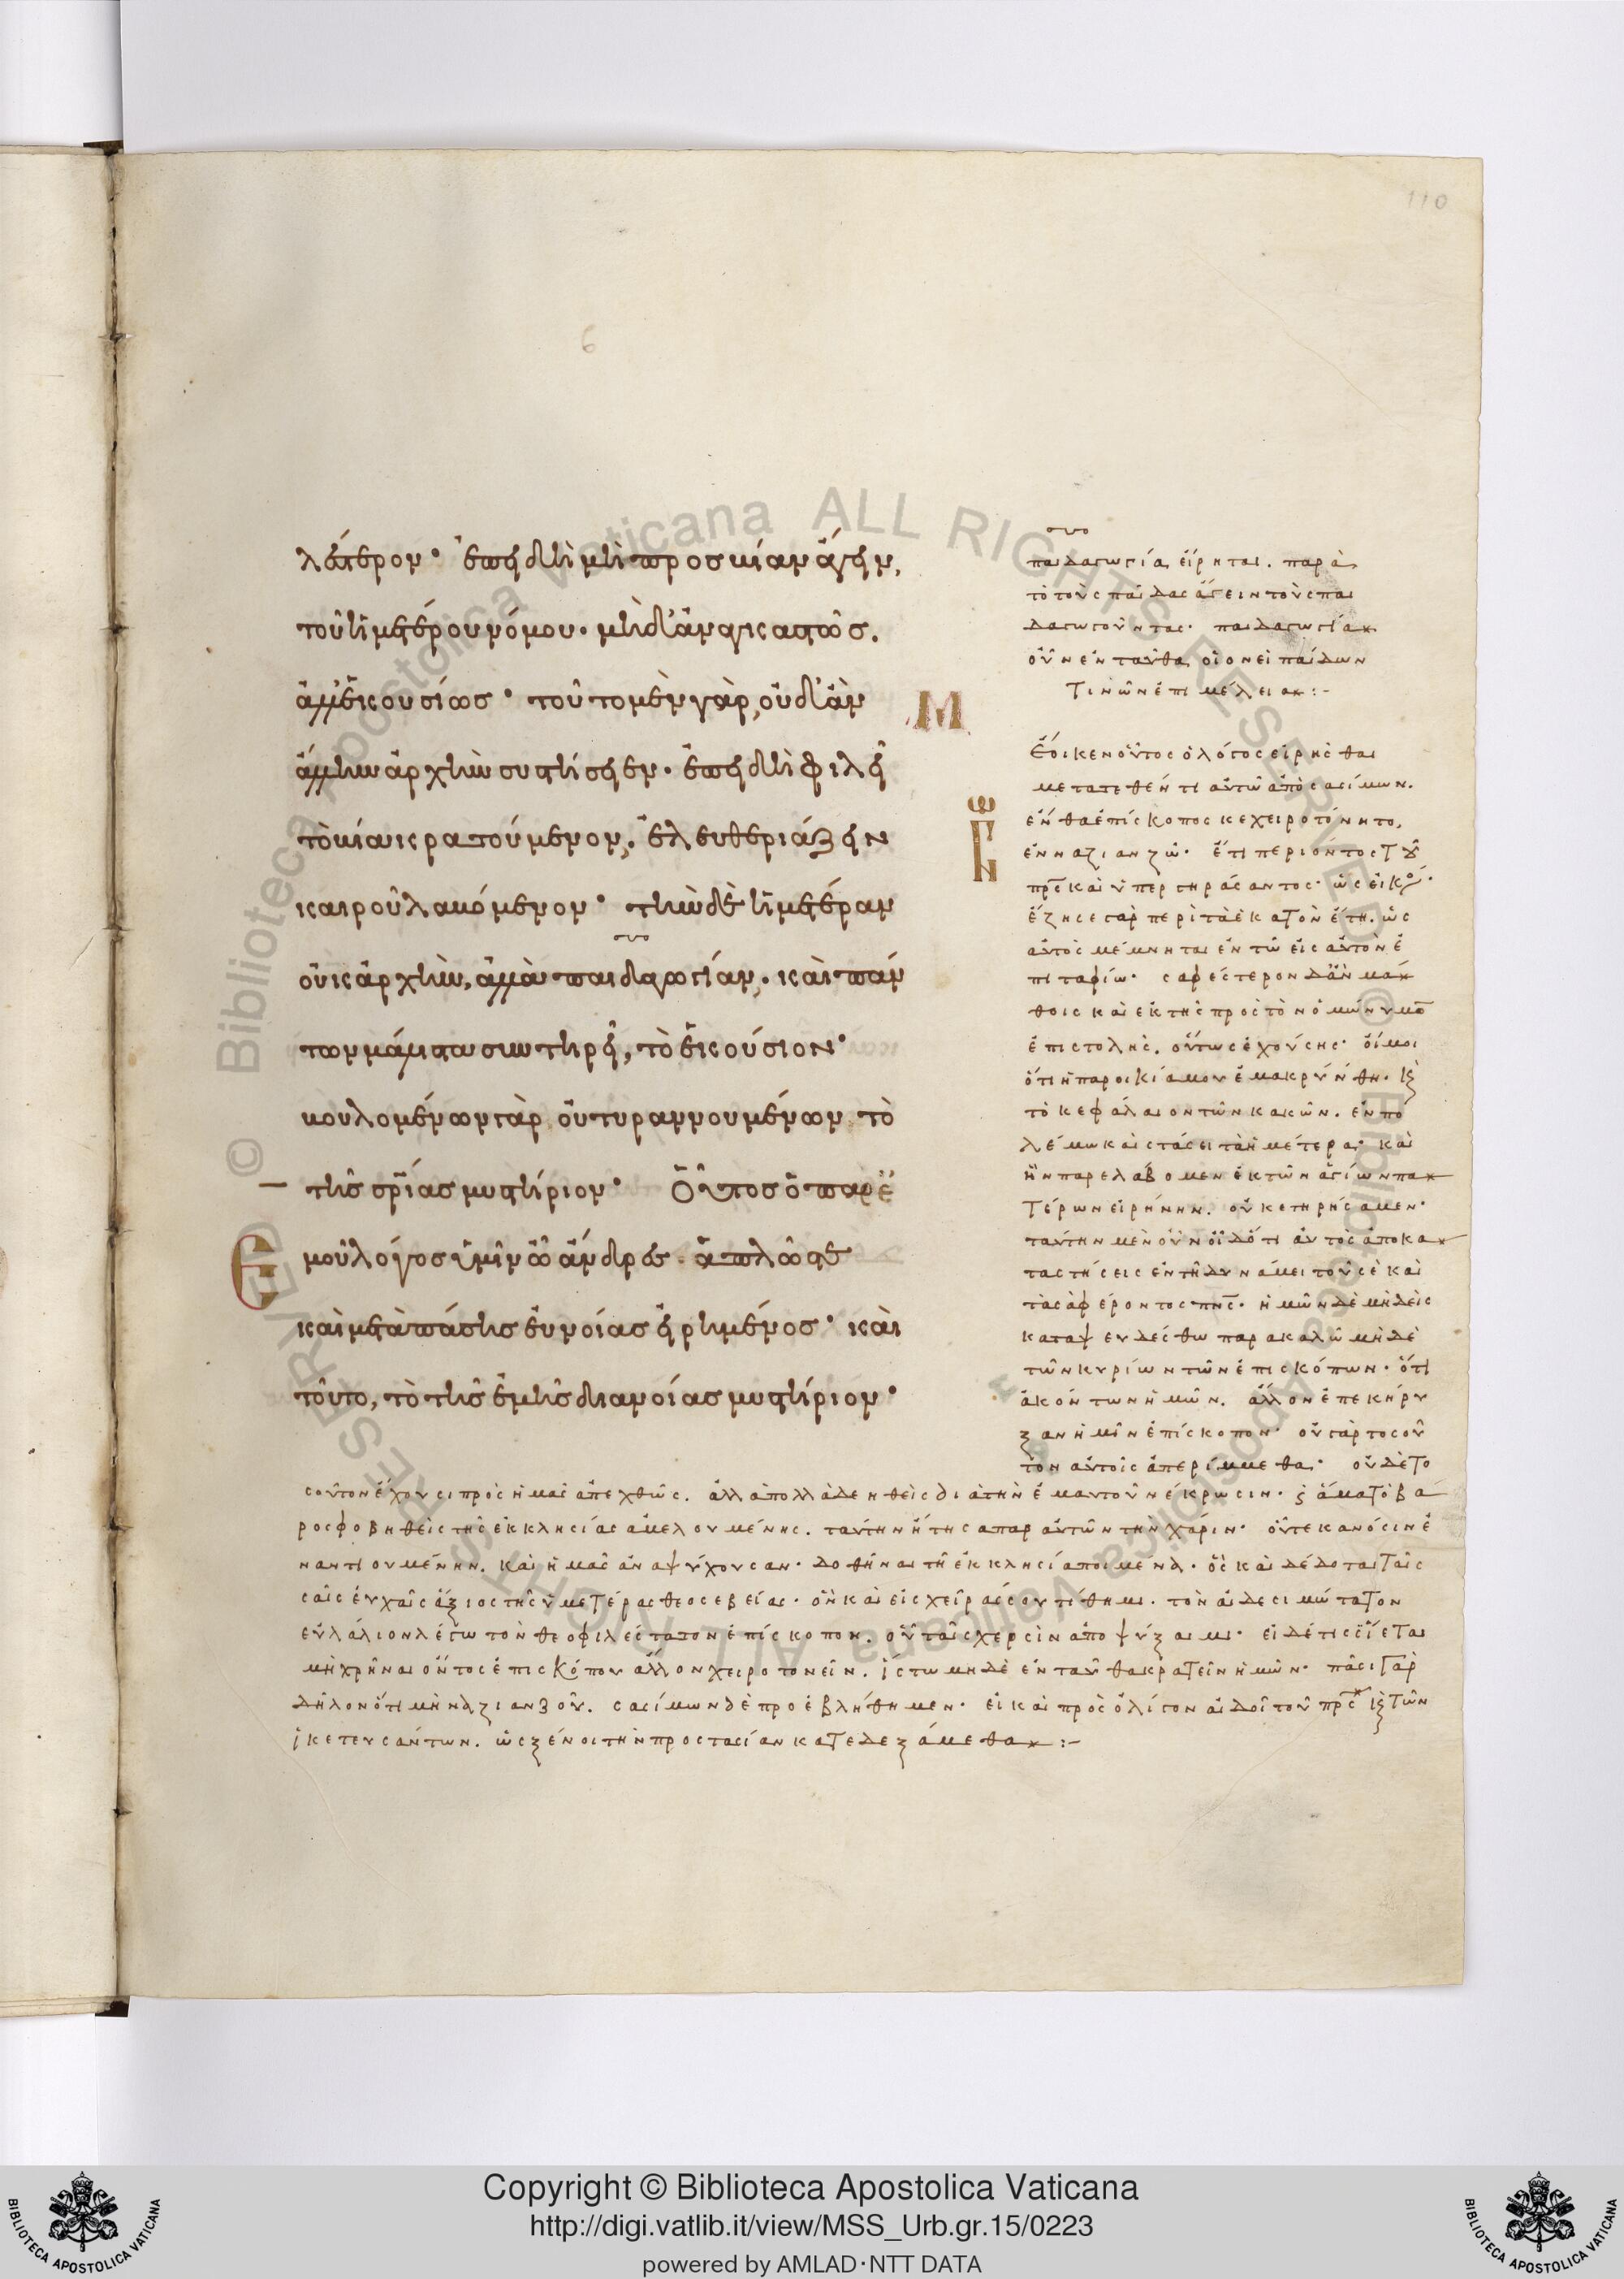 110
6
λέϊερον· ἐπειδὴ μὴ πρὸς βίαν ἄγειν,
τοῦ ἡμετέρου νόμου· μὴδ' ἀναγκαστῶς.
ἀλλ' ἑκουσίως· τοῦτο μὲν γὰρ, οὐδ' ἂν
ἄλλην ἀρχὴν συστήσειεν· ἐπειδὴ φιλεῖ
τὸ βίαι κρατούμενον, ἐλευθεριάζειν
καιροῦ λαβόμενον· τὴν δὲ ἡμετέραν
οὐκ ἀρχὴν, ἀλλὰ παιδαγωγίαν· καὶ πάν
των μάλιστα συντηρεῖ, τὸ ἑκούσιον·
βουλομένων γὰρ οὐ τυραννουμένων τὸ
τῆς σρίας μυστήριον· Οὗτος ὁ παρ' ἐ
μοῦ λόγος ὑμῖν ὦ ἄνδρες. ἁπλῶς τὲ
καὶ μετὰ πάσης εὐνοίας εἰρημένος· καὶ
τοῦτο, τὸ τῆς ἐμῆς διανοίας μυστήριον·
παιδαγωγία, εἴρηται. παρὰ
τὸ τοὺς παῖδας ἄγειν τοὺς παι
δαγωγοῦντας· παιδαγωγία
οὖν ἐνταῦθα, οἱονεὶ παίδων
τινῶν ἐπιμέλεια :-
Μ
Ἔοικεν οὗτος ὁ λόγος εἰρῆσθαι
μετατεθέντι αὐτῶ ἀπὸ σασίμων.
ἔνθα ἐπίσκοπος κεχειροτόνητο,
ἐν ναζιανζῶ· ἔτι περιόντος τοῦ
πρς καὶ ὑπεργηράσαντος· ὡς εἰκός·
ἔζησε γὰρ περὶ τὰ ἑκατὸν ἔτη. ὡς
αὐτὸς μέμνηται ἐν τῶ εἰς αὐτὸν ἐ
πιταφίω· σαφέστερον δ' ἂν μά
θοις καὶ ἐκ τῆς πρὸς τὸν
ἐπιστολῆς. οὕτως ἐχούσης· οἴμοι
ὅτι ἡ παροικία μου ἐμακρύνθη. καὶ
τὸ κεφάλαιον τῶν κακῶν. ἐν πο
λέμω καὶ στάσει τὰ ἡμέτερα· καὶ
ἣν παρελάβομεν ἐκ τῶν ἁγίων πα
τέρων εἰρήνην. οὐκ ἐτηρήσαμεν·
ταύτην μὲν οὖν οἶδ' ὅτι αὐτὸς ἀποκα
ταστήσεις ἐν τῆ δυνάμει τοῦ σὲ καὶ
τὰ σὰ φέροντος πνς· ἡμῶν δὲ μὴδεὶς
καταψευδέσθω παρακαλῶ μὴδὲ
τῶν κυρίων τῶν ἐπισκόπων· ὅτι
ἀκόντων ἡμῶν. ἄλλον ἐπεκήρυ
ξαν ἡμῖν ἐπίσκοπον· οὐ γὰρ τοσοῦ
τον αὐτοῖς ἀπερίμμεθα· οὐδὲ το
σοῦτον ἔχουσι πρὸς ἡμᾶς ἀπεχθῶς. ἀλλὰ πολλὰ δεηθεὶς διὰ τὴν ἐμαυτοῦ νέκρωσιν· καὶ ἅμα τὸ βά
ρος φοβηθεὶς τῆς ἐκκλησίας ἀμελουμένης. ταύτην ἤτησα παρ' αὐτῶν τὴν χάριν· οὔτε κανόσιν ἐ
ναντιουμένην. καὶ ἡμᾶς ἀναψύχουσαν· δοθῆναι τῆ ἐκκλησία ποιμένα· ὃς καὶ δέδοται ταῖς
σαῖς εὐχαῖς ἄξιος τῆς ὑμετέρας θεοσεβείας· ὃν καὶ εἰς χεῖρας σου τίθημι. τὸν αἰδεσιμώτατον
εὐλάλιον λέγω τὸν θεοφιλέστατον ἐπίσκοπον. οὗ ταῖς χερσὶν ἀποψύξαιμι· εἰ δέ τις οἴεται
μὴ χρῆναι ὄντος ἐπισκόπου ἄλλον χειροτονεῖν. ἴστω μηδὲ ἐνταῦθα κρατεῖν ἡμῶν· πᾶσι γὰρ
δῆλον ὅτι μὴ ναζιανζοῦ. σασίμων δὲ προεβλήθημεν· εἰ καὶ πρὸς ὀλίγον αἰδοῖ τοῦ πρς καὶ τῶν
ἱκετευσάντων. ὡς ξένοι τὴν προστασίαν κατεδεξάμεθα :-
Copyright © Biblioteca Apostolica Vaticana
http://digi.vatlib.it/view/MSS_Urb.gr.15/0223
powered by AMLAD·NTT DATA
BIBLIOTECA APOSTOLICA VATICANA
BIBLIOTECA APOSTOLICA VATICANA